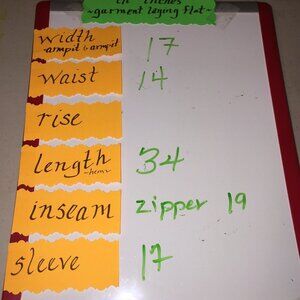 in inches
~garment laying flat~
width 17
~armpit to armpit
waist 14
rise
length 34
~hem~
inseam zipper 19
sleeve 17